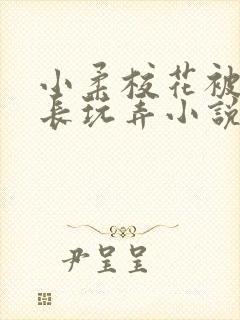 小柔校花被
长玩弄小説
尹呈呈